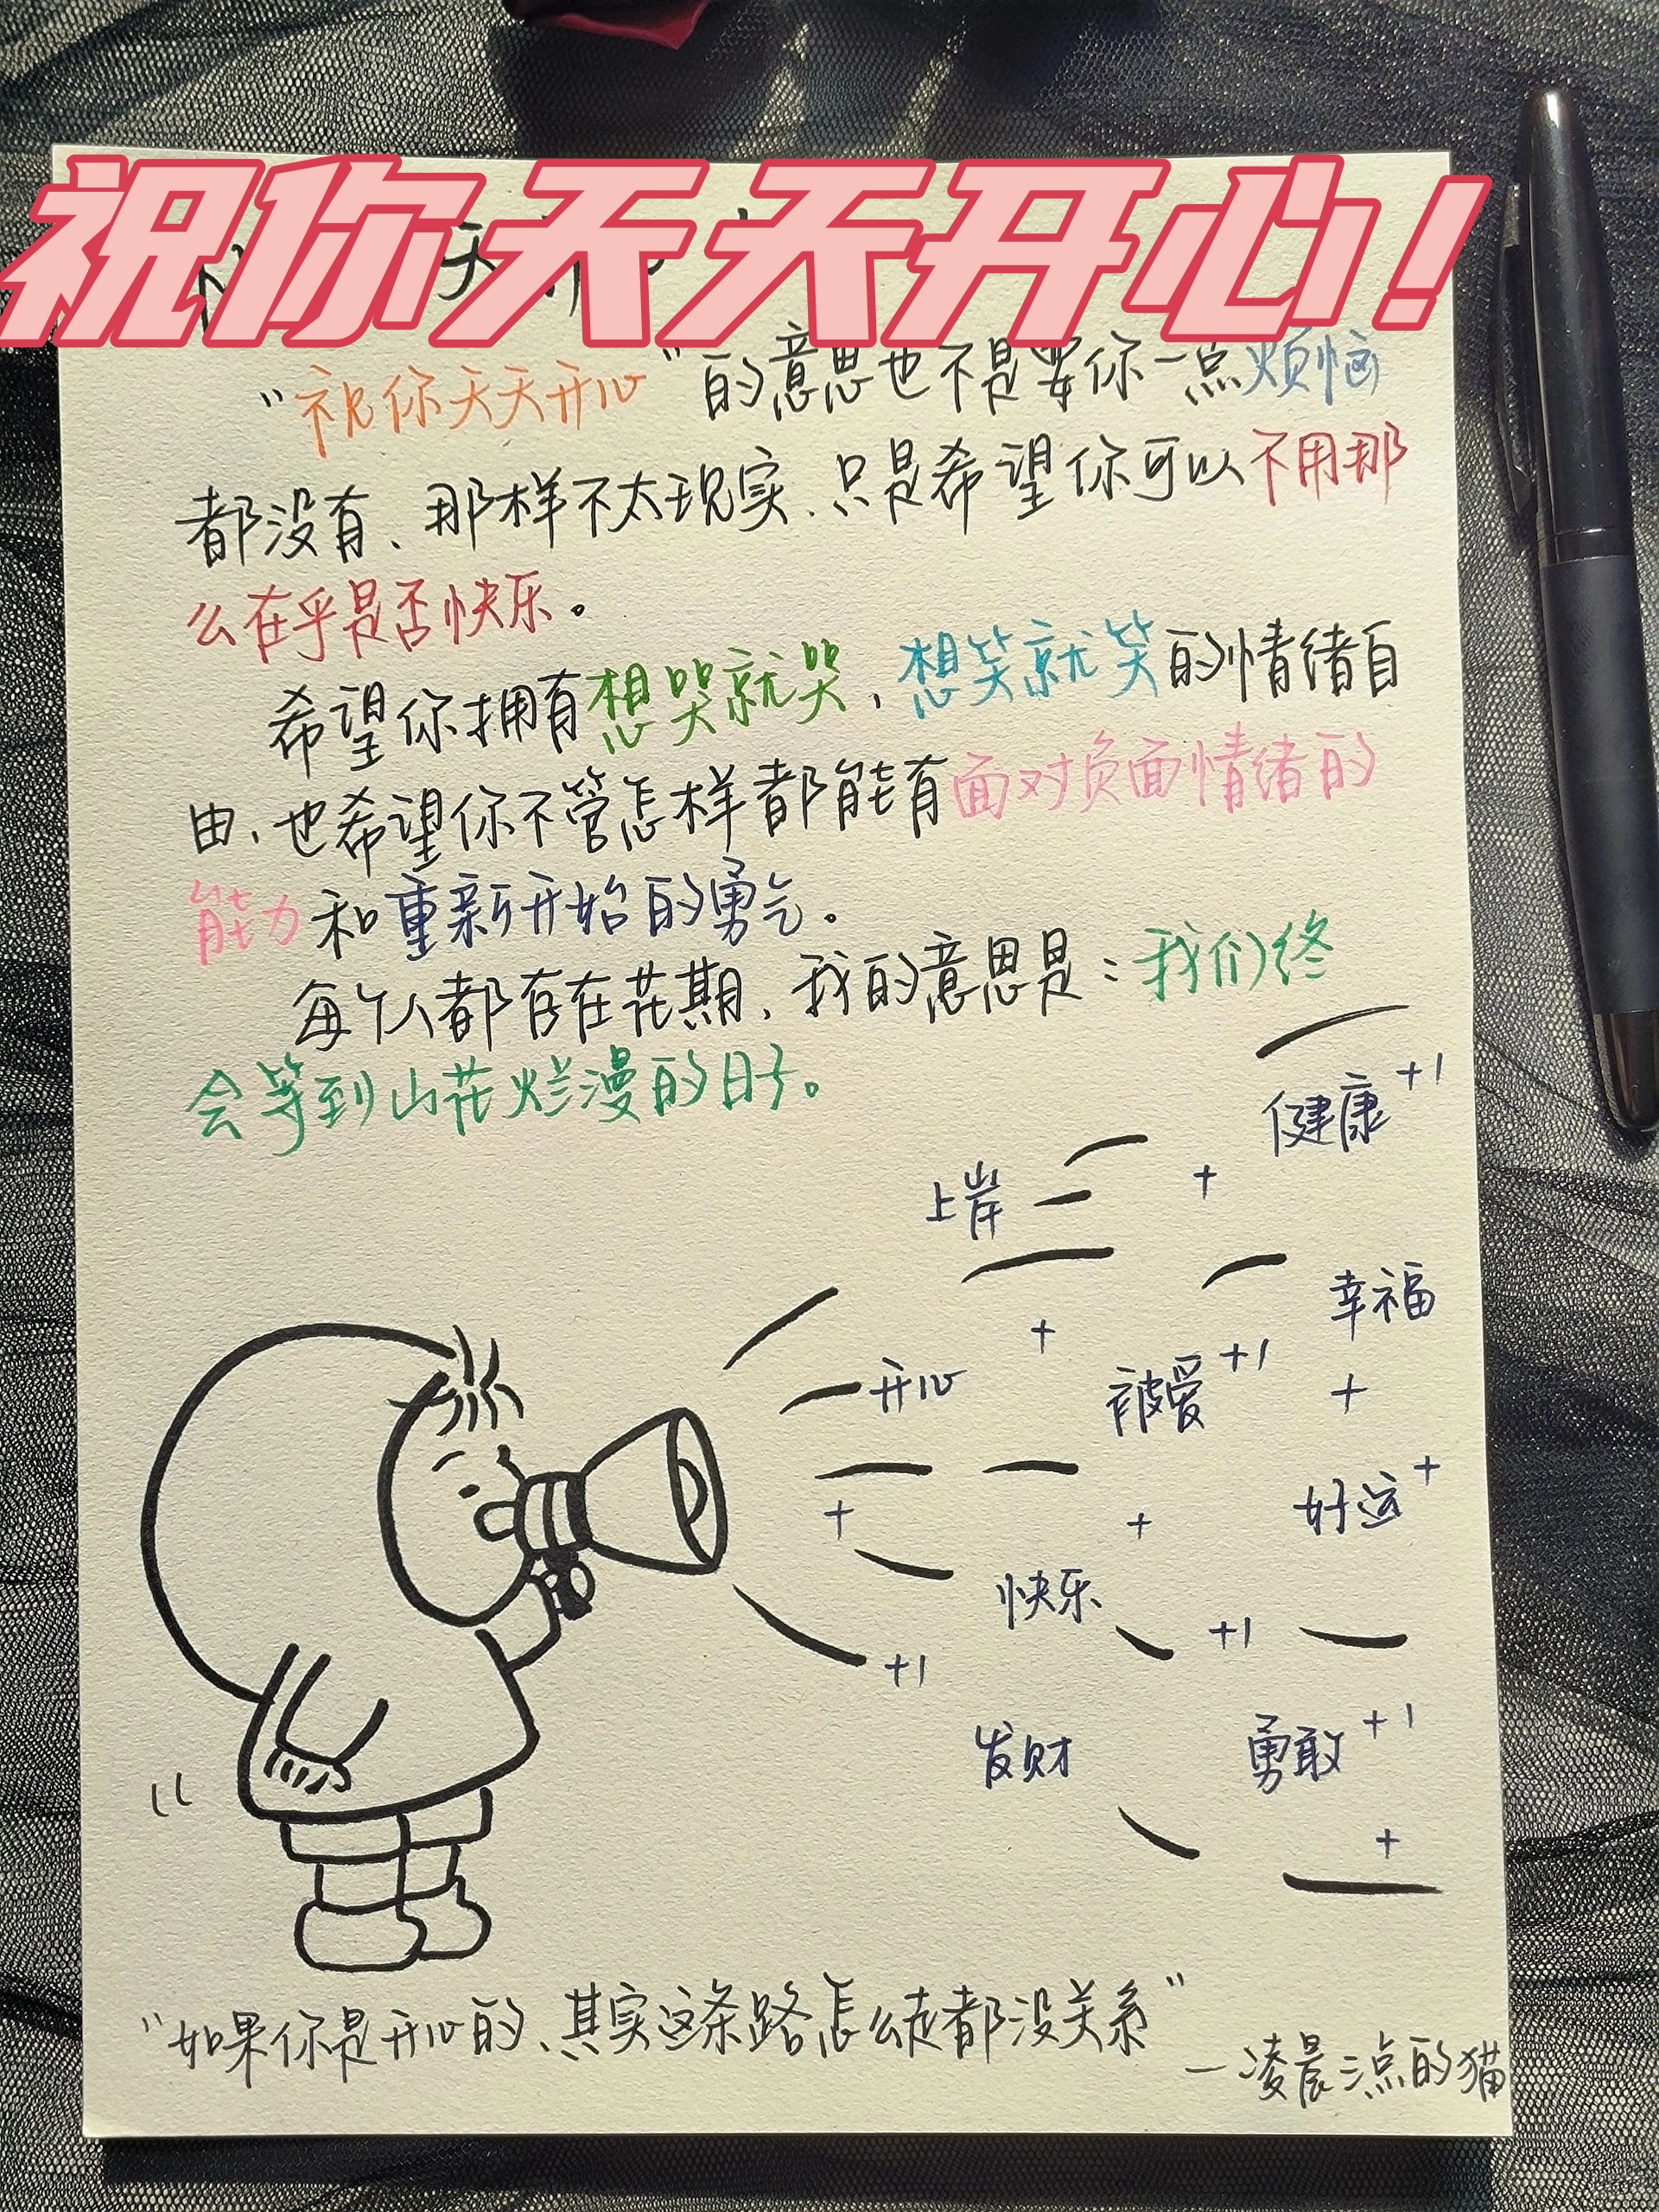 祝你天天开心!
“祝你天天开心”的意思也不是要你一点烦恼
都没有、那样不太现实、只是希望你可以不用那
么在乎是否快乐。
希望你拥有想哭就哭、想笑就笑的情绪自
由、也希望你不管怎样都能有面对负面情绪的
能力和重新开始的勇气。
每个人都存在花期、我的意思是:我们终
会等到山花烂漫的日子。
健康+1
上岸
+
幸福
+
开心
被爱+1
+
好运+
+
+
快乐
+1
+1
发财
勇敢+1
+
“如果你是开心的、其实这条路怎么走都没关系”
—凌晨三点的猫